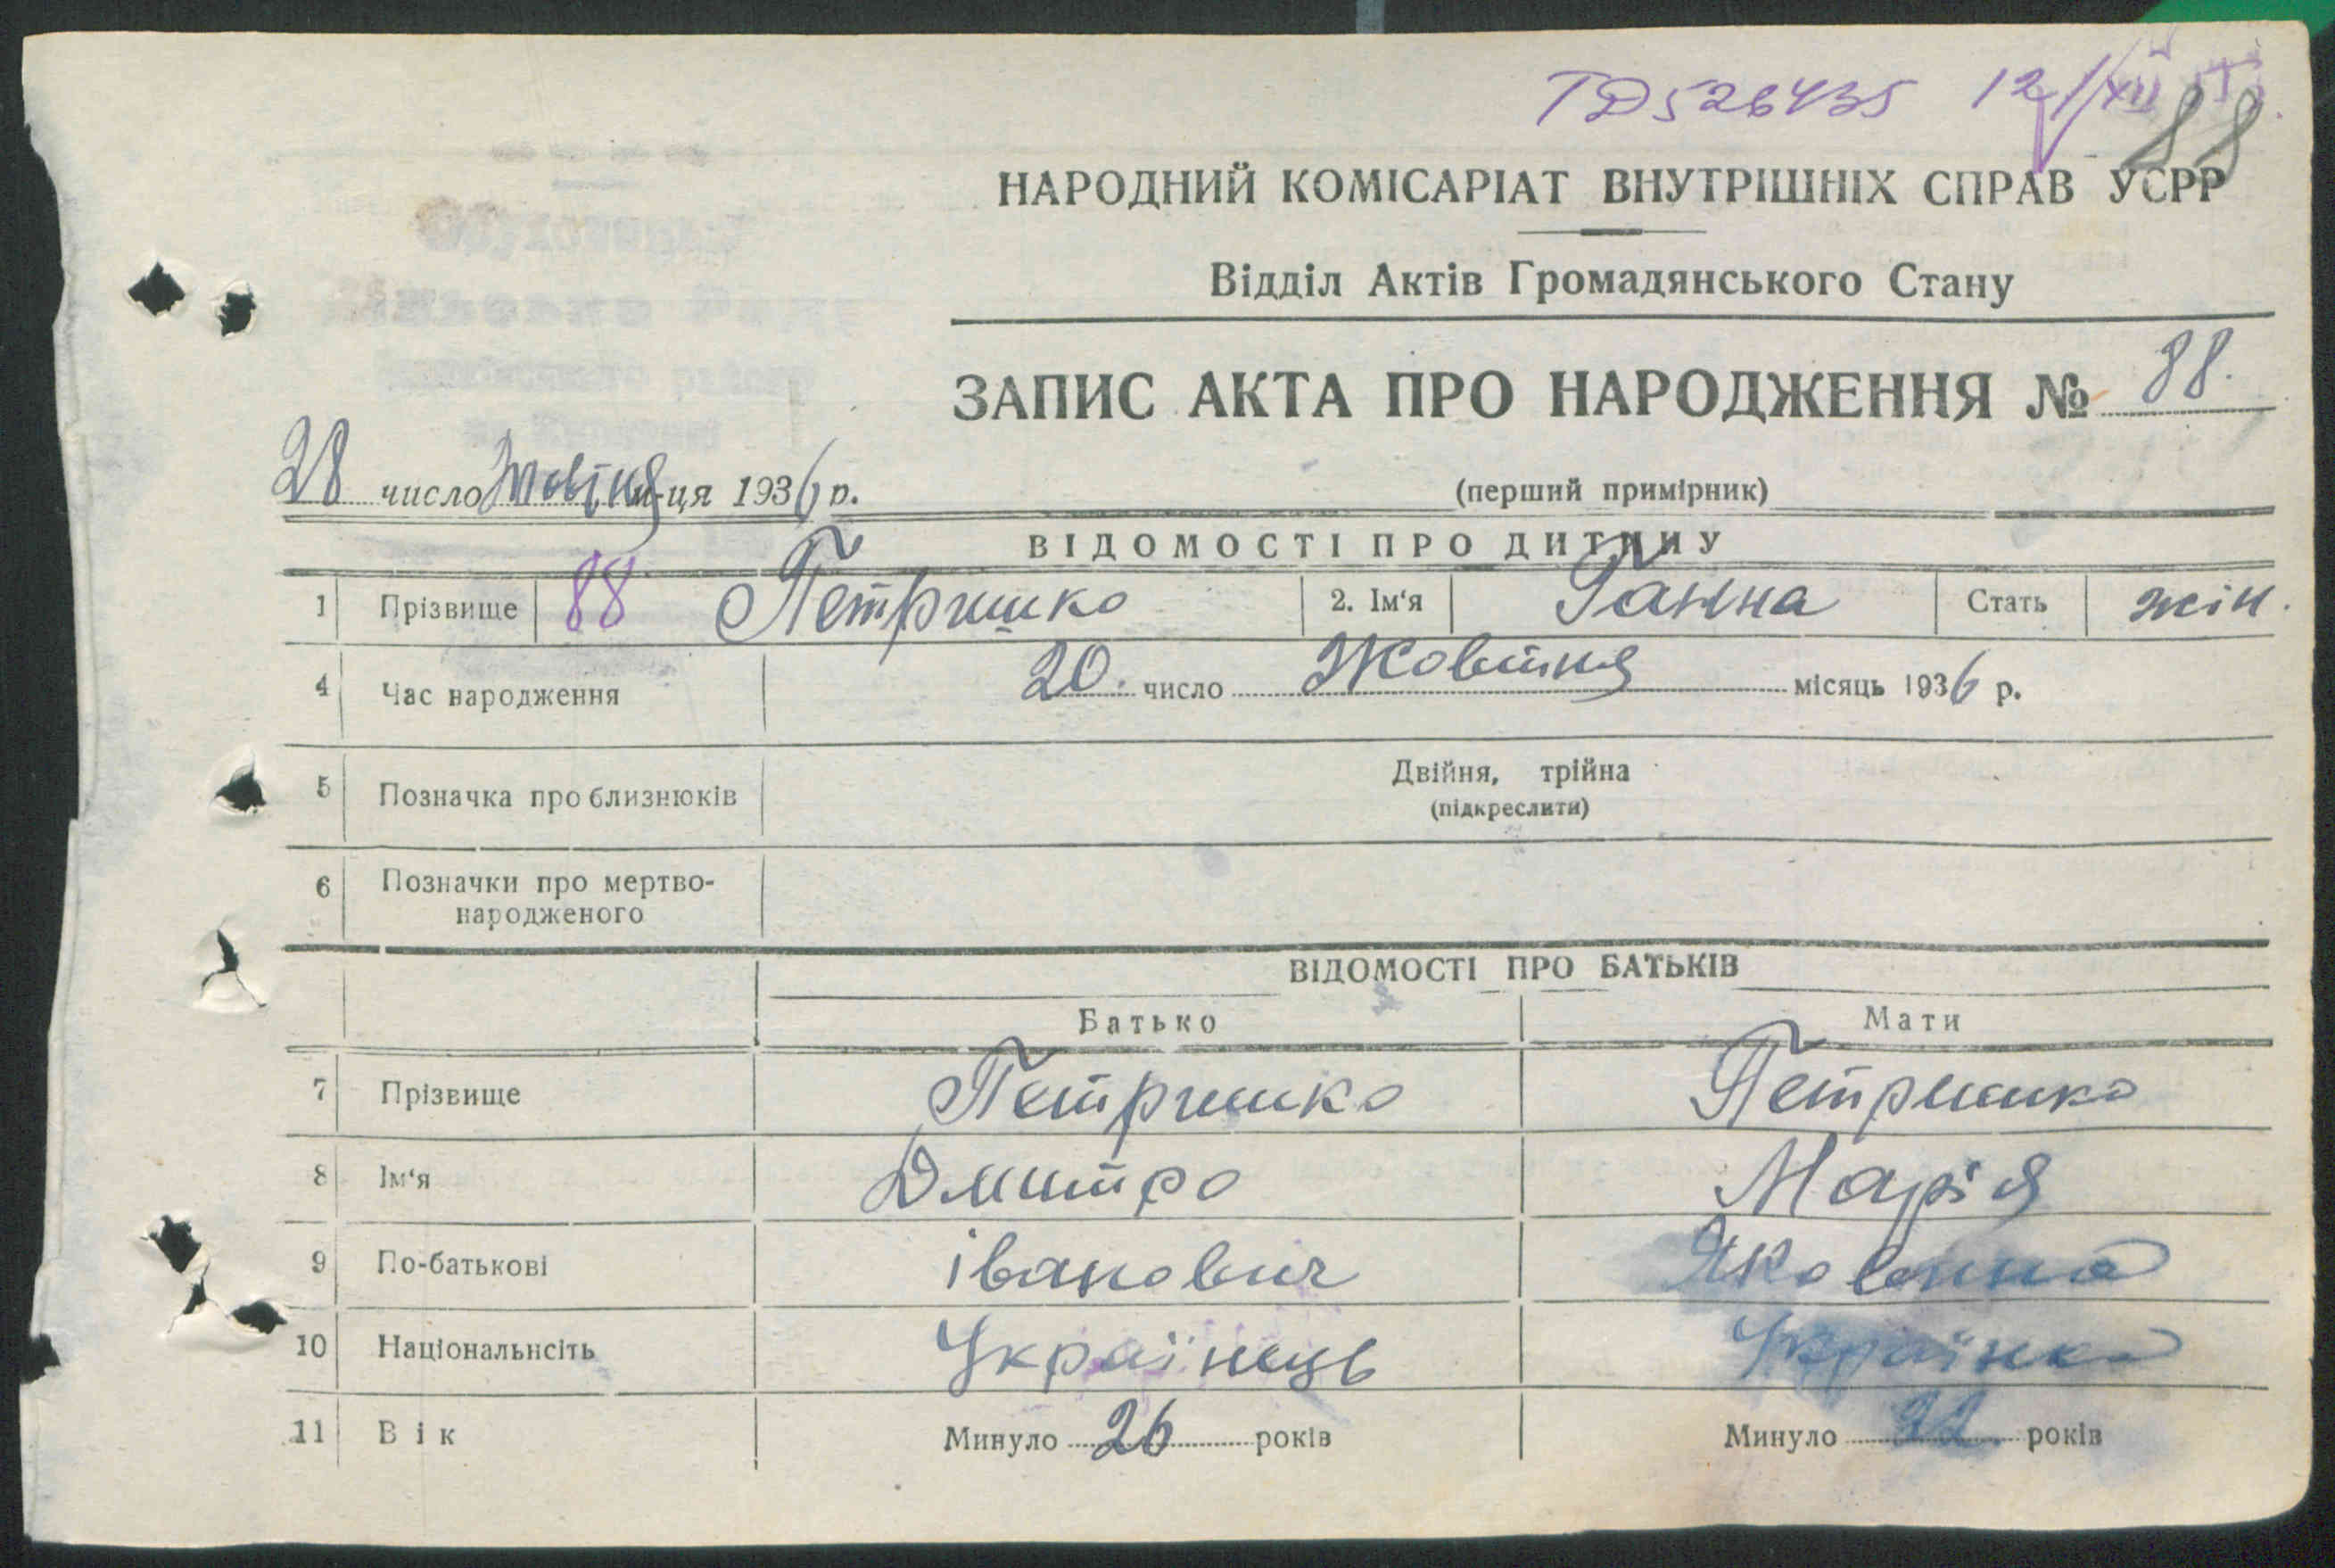 ТД 526435 12/XII
88
НАРОДНИЙ КОМІСАРІАТ ВНУТРІШНІХ СПРАВ УСРР
Відділ Актів Громадянського Стану
ЗАПИС АКТА ПРО НАРОДЖЕННЯ № 88.
28 число Жовтня м-ця 1936 р.
(перший примірник)
ВІДОМОСТІ ПРО ДИТИНУ
1 Прізвище 88 Петришко 2. Ім'я Ганна Стать жін.
4 Час народження 20. число Жовтня місяць 1936 р.
5 Позначка про близнюків Двійня, трійна
(підкреслити)
6 Позначки про мертво-
народженого
ВІДОМОСТІ ПРО БАТЬКІВ
Батько Мати
7 Прізвище Петришко Петришко
8 Ім'я Дмитро Марія
9 По-батькові іванович Яковенна
10 Національнсіть Українець Українка
11 Вік Минуло 26 років Минуло 22 років